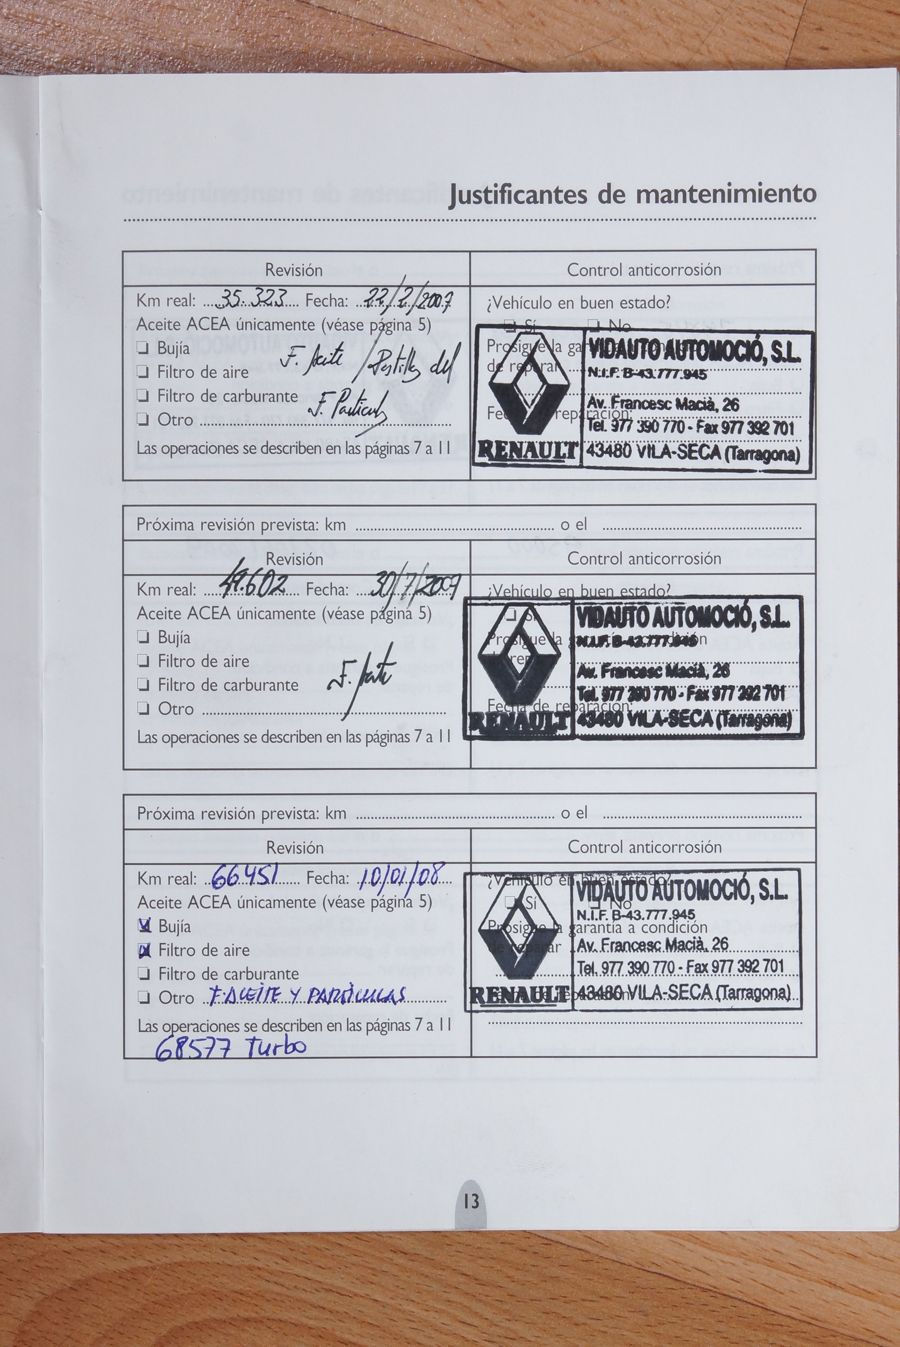 Justificantes de mantenimiento
Revisión
Control anticorrosión
Km real: 35.323 Fecha: 22/2/2007
Aceite ACEA únicamente (véase página 5)
❏ Bujía
❏ Filtro de aire
❏ Filtro de carburante
❏ Otro
F. / Pastillas del
F.
Las operaciones se describen en las páginas 7 a 11
¿Vehículo en buen estado?
❏ Sí ❏ No
RENAULT
VIDAUTO AUTOMOCIÓ, S.L.
N.I.F. B-43.777.945
Av. Francesc Macià, 26
Tel. 977 390 770 - Fax 977 392 701
43480 VILA-SECA (Tarragona)
Próxima revisión prevista: km o el
Revisión
Control anticorrosión
Km real: 49.602 Fecha: 30/7/2007
Aceite ACEA únicamente (véase página 5)
❏ Bujía
❏ Filtro de aire
❏ Filtro de carburante
❏ Otro
F.
Las operaciones se describen en las páginas 7 a 11
¿Vehículo en buen estado?
Fecha de reparación:
RENAULT
VIDAUTO AUTOMOCIÓ, S.L.
N.I.F. B-43.777.945
Av. Francesc Macià, 26
Tel. 977 390 770 - Fax 977 392 701
43480 VILA-SECA (Tarragona)
Próxima revisión prevista: km o el
Revisión
Control anticorrosión
Km real: 66.451 Fecha: 10/01/08
Aceite ACEA únicamente (véase página 5)
Bujía
Filtro de aire
❏ Filtro de carburante
❏ Otro F ACEITE Y PARTICULAS
Las operaciones se describen en las páginas 7 a 11
68577 Turbo
¿Vehículo en buen estado?
❏ Sí ❏ No
Prosigue la garantía a condición
de reparar
RENAULT
VIDAUTO AUTOMOCIÓ, S.L.
N.I.F. B-43.777.945
Av. Francesc Macià, 26
Tel. 977 390 770 - Fax 977 392 701
43480 VILA-SECA (Tarragona)
13